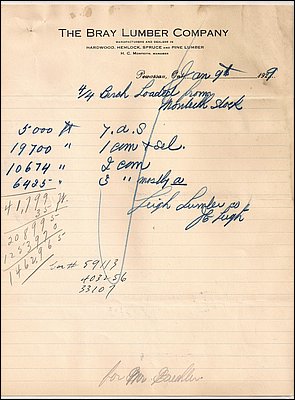 THE BRAY LUMBER COMPANY
MANUFACTURERS AND DEALERS IN
HARDWOOD, HEMLOCK, SPRUCE AND PINE LUMBER
H. C. MONTEITH, MANAGER
Powassan, Ont. Jan 9th 19
4/4 Birch Loaded from
Monteith Stock
5000 ft F. a S
19700 " 1 com & sel.
10674 " 2 com
6425 " 3 " mostly a
Leigh Lumber Co
41,799 ft.
35
208995
125397
1462965
Car # 59113
403256
33107
for Mr.